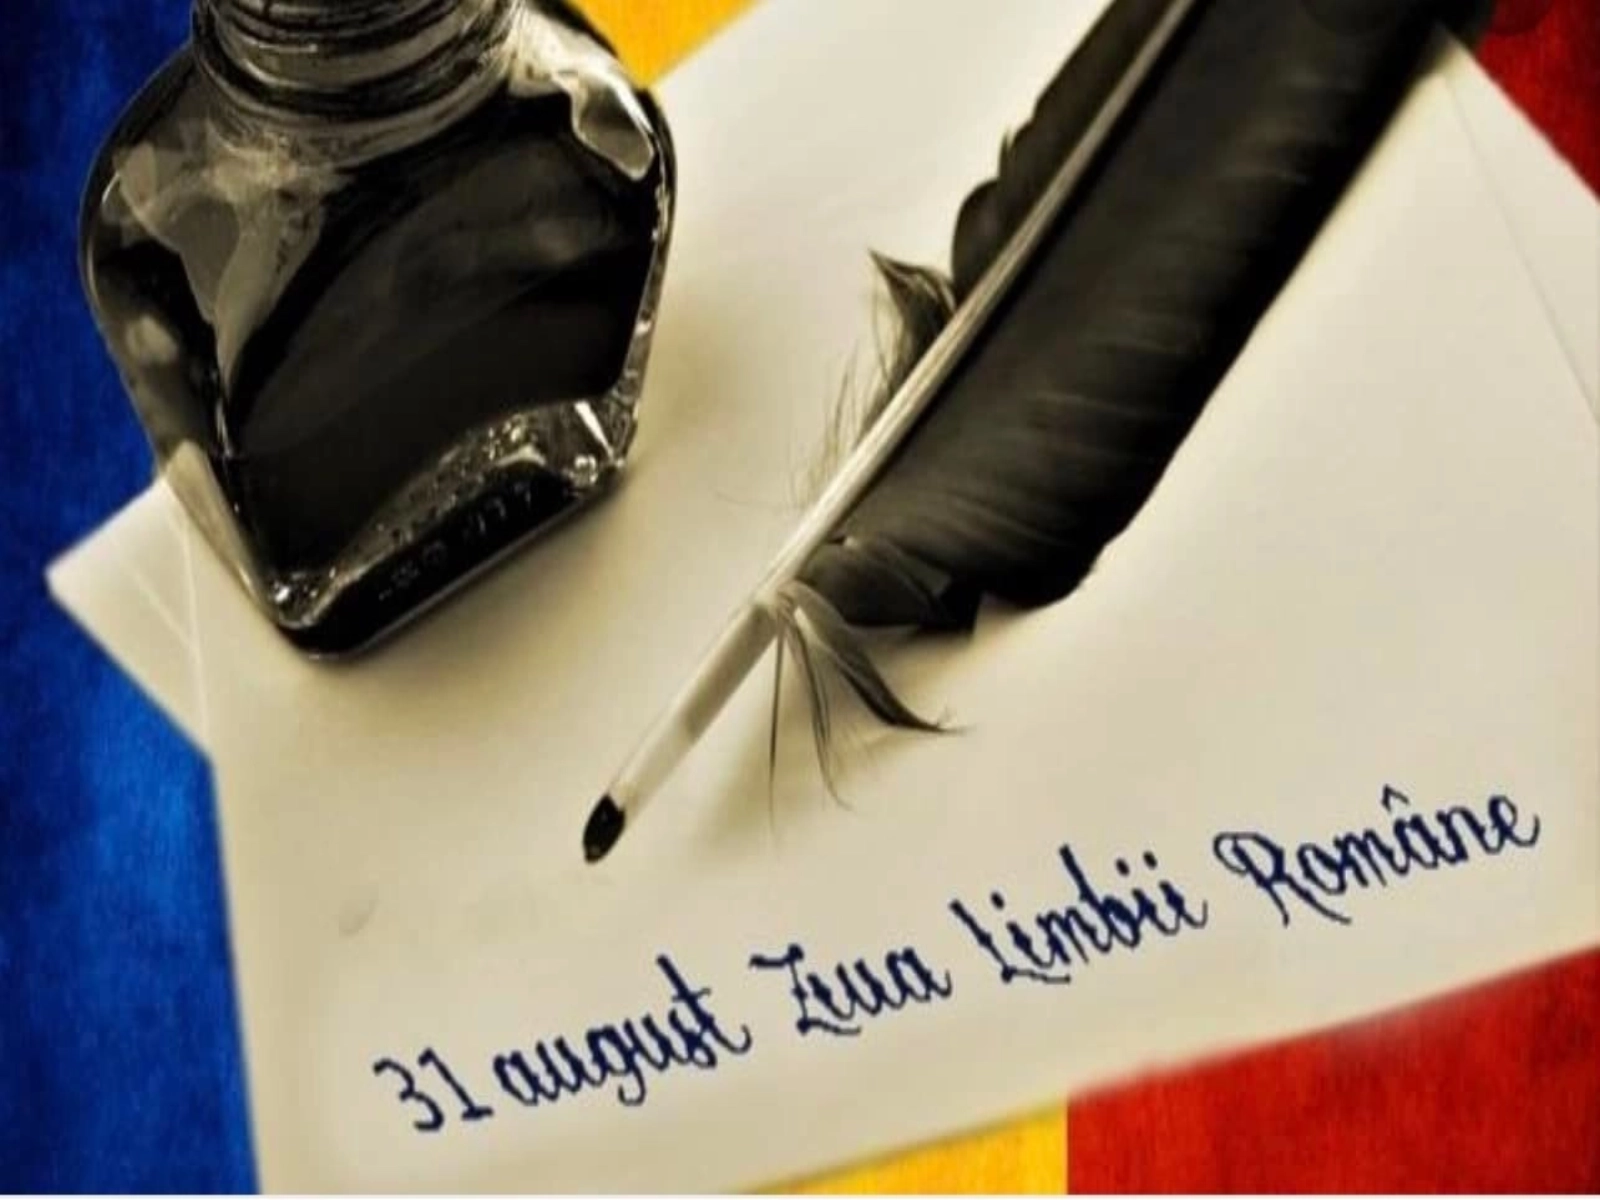 31 august Ziua Limbii Române